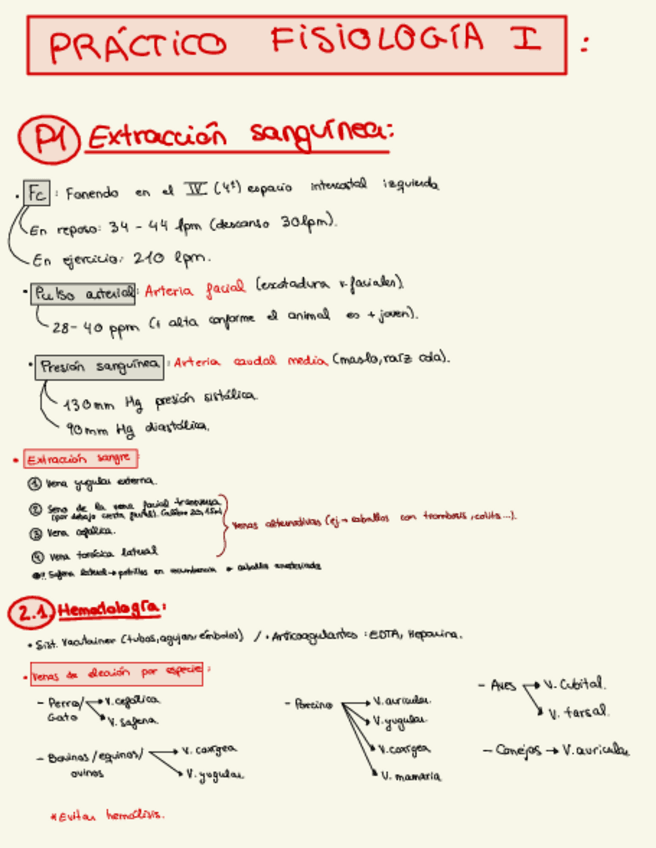 PRÁCTICO FISIOLOGÍA I :
P1 Extracción sanguínea:
· Fc : Fonendo en el IV (4º) espacio intercostal izquierda
En reposo: 34 - 44 lpm (descanso 30lpm).
En ejercicio: 210 lpm.
· Pulso arterial: Arteria facial (escotadura v. faciales).
28-40 ppm (+ alta conforme el animal es + joven).
· Presión sanguínea: Arteria caudal media (maslo, raíz cola).
130mm Hg presión sistólica.
90mm Hg diastólica.
· Extracción sangre
① Vena yugular externa.
② Seno de la vena facial transversa
(por debajo cresta facial).
③ Vena cefálica.
④ Vena torácica lateral
Venas alternativas (ej → caballos con trombosis, colitis...).
Safena lateral → potrillos en recumbencia o caballos anestesiados
2.1. Hematología:
· Sist. Vacutainer (tubos, agujas, émbolos) / · Anticoagulantes: EDTA, Heparina.
· Venas de elección por especie:
- Perro/Gato → V. cefálica
→ V. safena
- Bovinos/equinos/ovinos → V. coxígea
→ V. yugular
- Porcino → V. auricular
→ V. yugular
→ V. coxígea
→ V. mamaria
- Aves → V. Cubital.
→ V. tarsal.
- Conejos → V. auricular
*Evitar hemólisis.